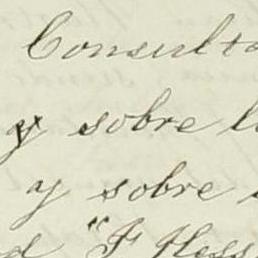 Consulto
y sobre l
y sobre
d "F Hess